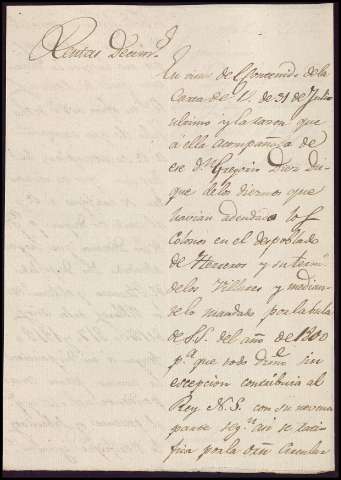 Rentas Decim.s
En vista de el contenido de la
Carta de V. de 31 de Julio
ultimo y la tasen que
a ella acompaña de
ese d.n Gregorio Diez
que de los diezmos que
havian adeudado los
Colonos en el despoblado
de Herreros y su term.
de los Villares y median-
do lo mandado por la bula
de S.S. del año de 1800
p.a que todo sin
excepcion contribuia al
Rey N.S. con su novena
parte seg.n asi se
por la orn Circular